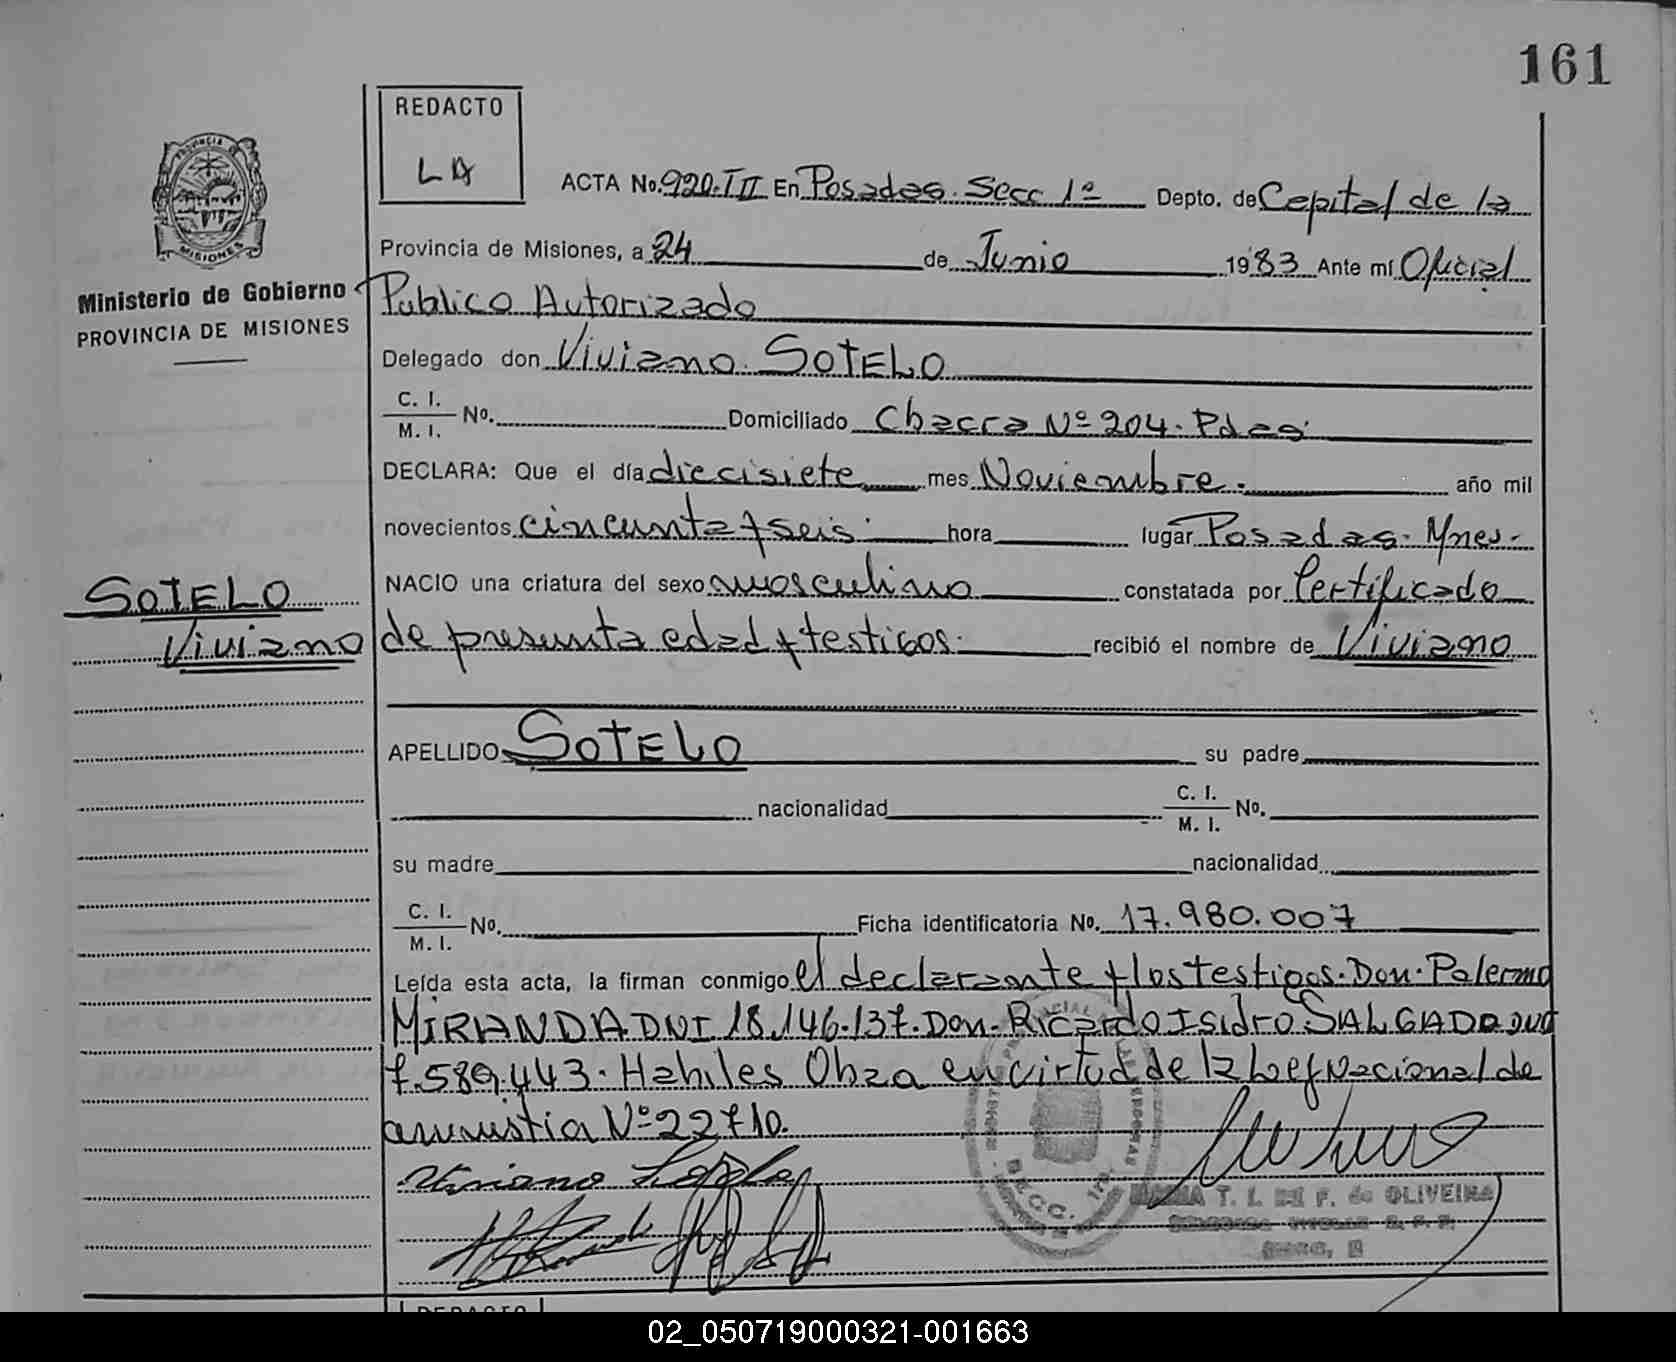 161
REDACTO
LA
PROVINCIA DE
MISIONES
ACTA No. 920.III En Posadas. Secc 1ª Depto. de Capital de la
Provincia de Misiones, a 24 de Junio 1983 Ante mí Oficial
Ministerio de Gobierno
PROVINCIA DE MISIONES
Publico Autorizado
Delegado don Viviano. SOTELO
C. I. / M. I. No. Domiciliado Chacra Nº 204. Pdas.
DECLARA: Que el día diecisiete mes Noviembre. año mil
novecientos cincuenta y seis. hora lugar Posadas. Mnes.
NACIO una criatura del sexo masculino constatada por Certificado
SOTELO
Viviano
de presunta edad y testigos. recibió el nombre de Viviano
APELLIDO SOTELO su padre
nacionalidad C. I. / M. I. No.
su madre nacionalidad
C. I. / M. I. No. Ficha identificatoria No. 17.980.007
Leída esta acta, la firman conmigo el declarante y los testigos. Don. Palermo
MIRANDA DNI 18.146.137. Don. Ricardo Isidro SALGADO DNI
7.589.443. Habiles Obra en virtud de la Ley Nacional de
amnistia Nº 22710.
Viviano Sotelo
SECC. 1ra.
MARIA T. I. DE F. de OLIVEIRA
02_050719000321-001663